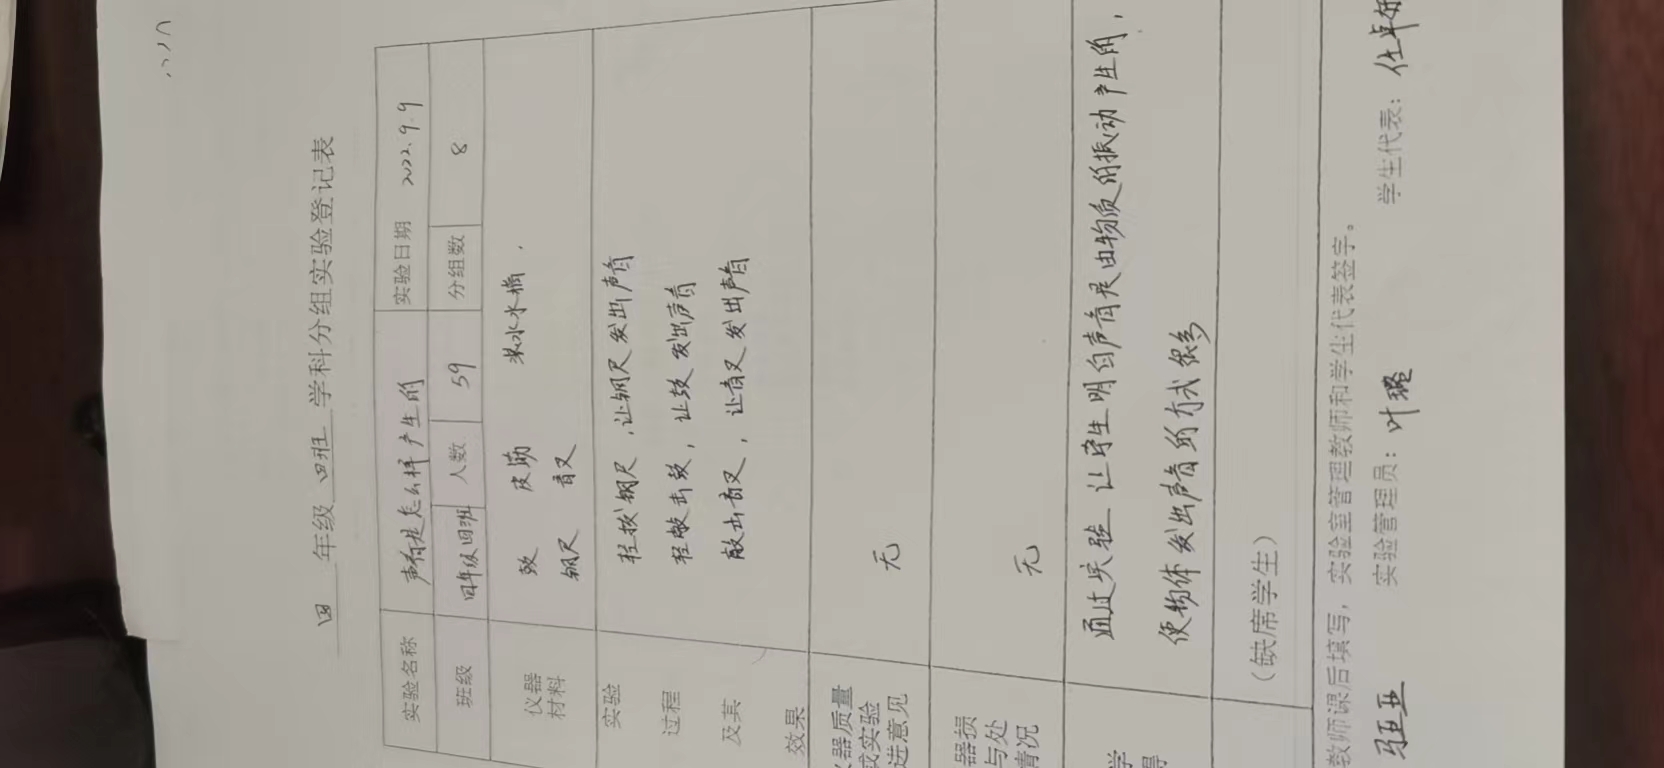 四 年级 四班 学科分组实验登记表
实验名称 声音是怎么样产生的 实验日期 2022.9.9
班级 四年级四班 人数 59 分组数 8
仪器材料 鼓 皮筋 装水水桶.
钢尺 音叉
实验过程及其效果
轻按钢尺,让钢尺发出声音
轻敲击鼓,让鼓发出声音
敲击音叉,让音叉发出声音
器质量
或实验
进意见
无
器损
与处
情况
无
学
得
通过实验 让学生明白声音是由物质的振动产生的,
使物体发出声音的方式很多
(缺席学生)
教师课后填写,实验室管理教师和学生代表签字。
实验管理员:叶璐 学生代表: